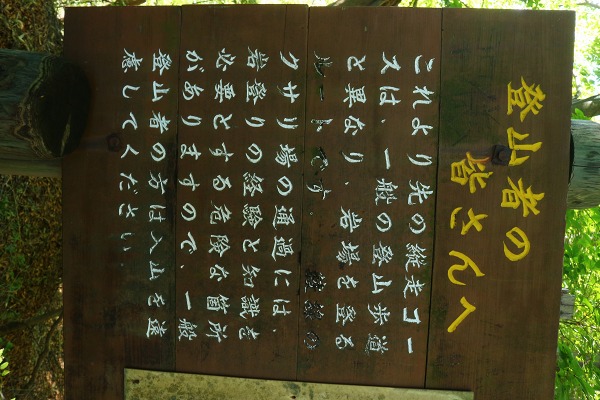 登山者の
皆さんへ
これより先の縦走コー
スは、一般の登山歩道
と異なり、岩場を登る
ルートです。
クサリ場の通過には、
岩登りの経験と知識を
必要とする危険な箇所
がありますので、一般
登山者の方は入山を遠
慮してください。